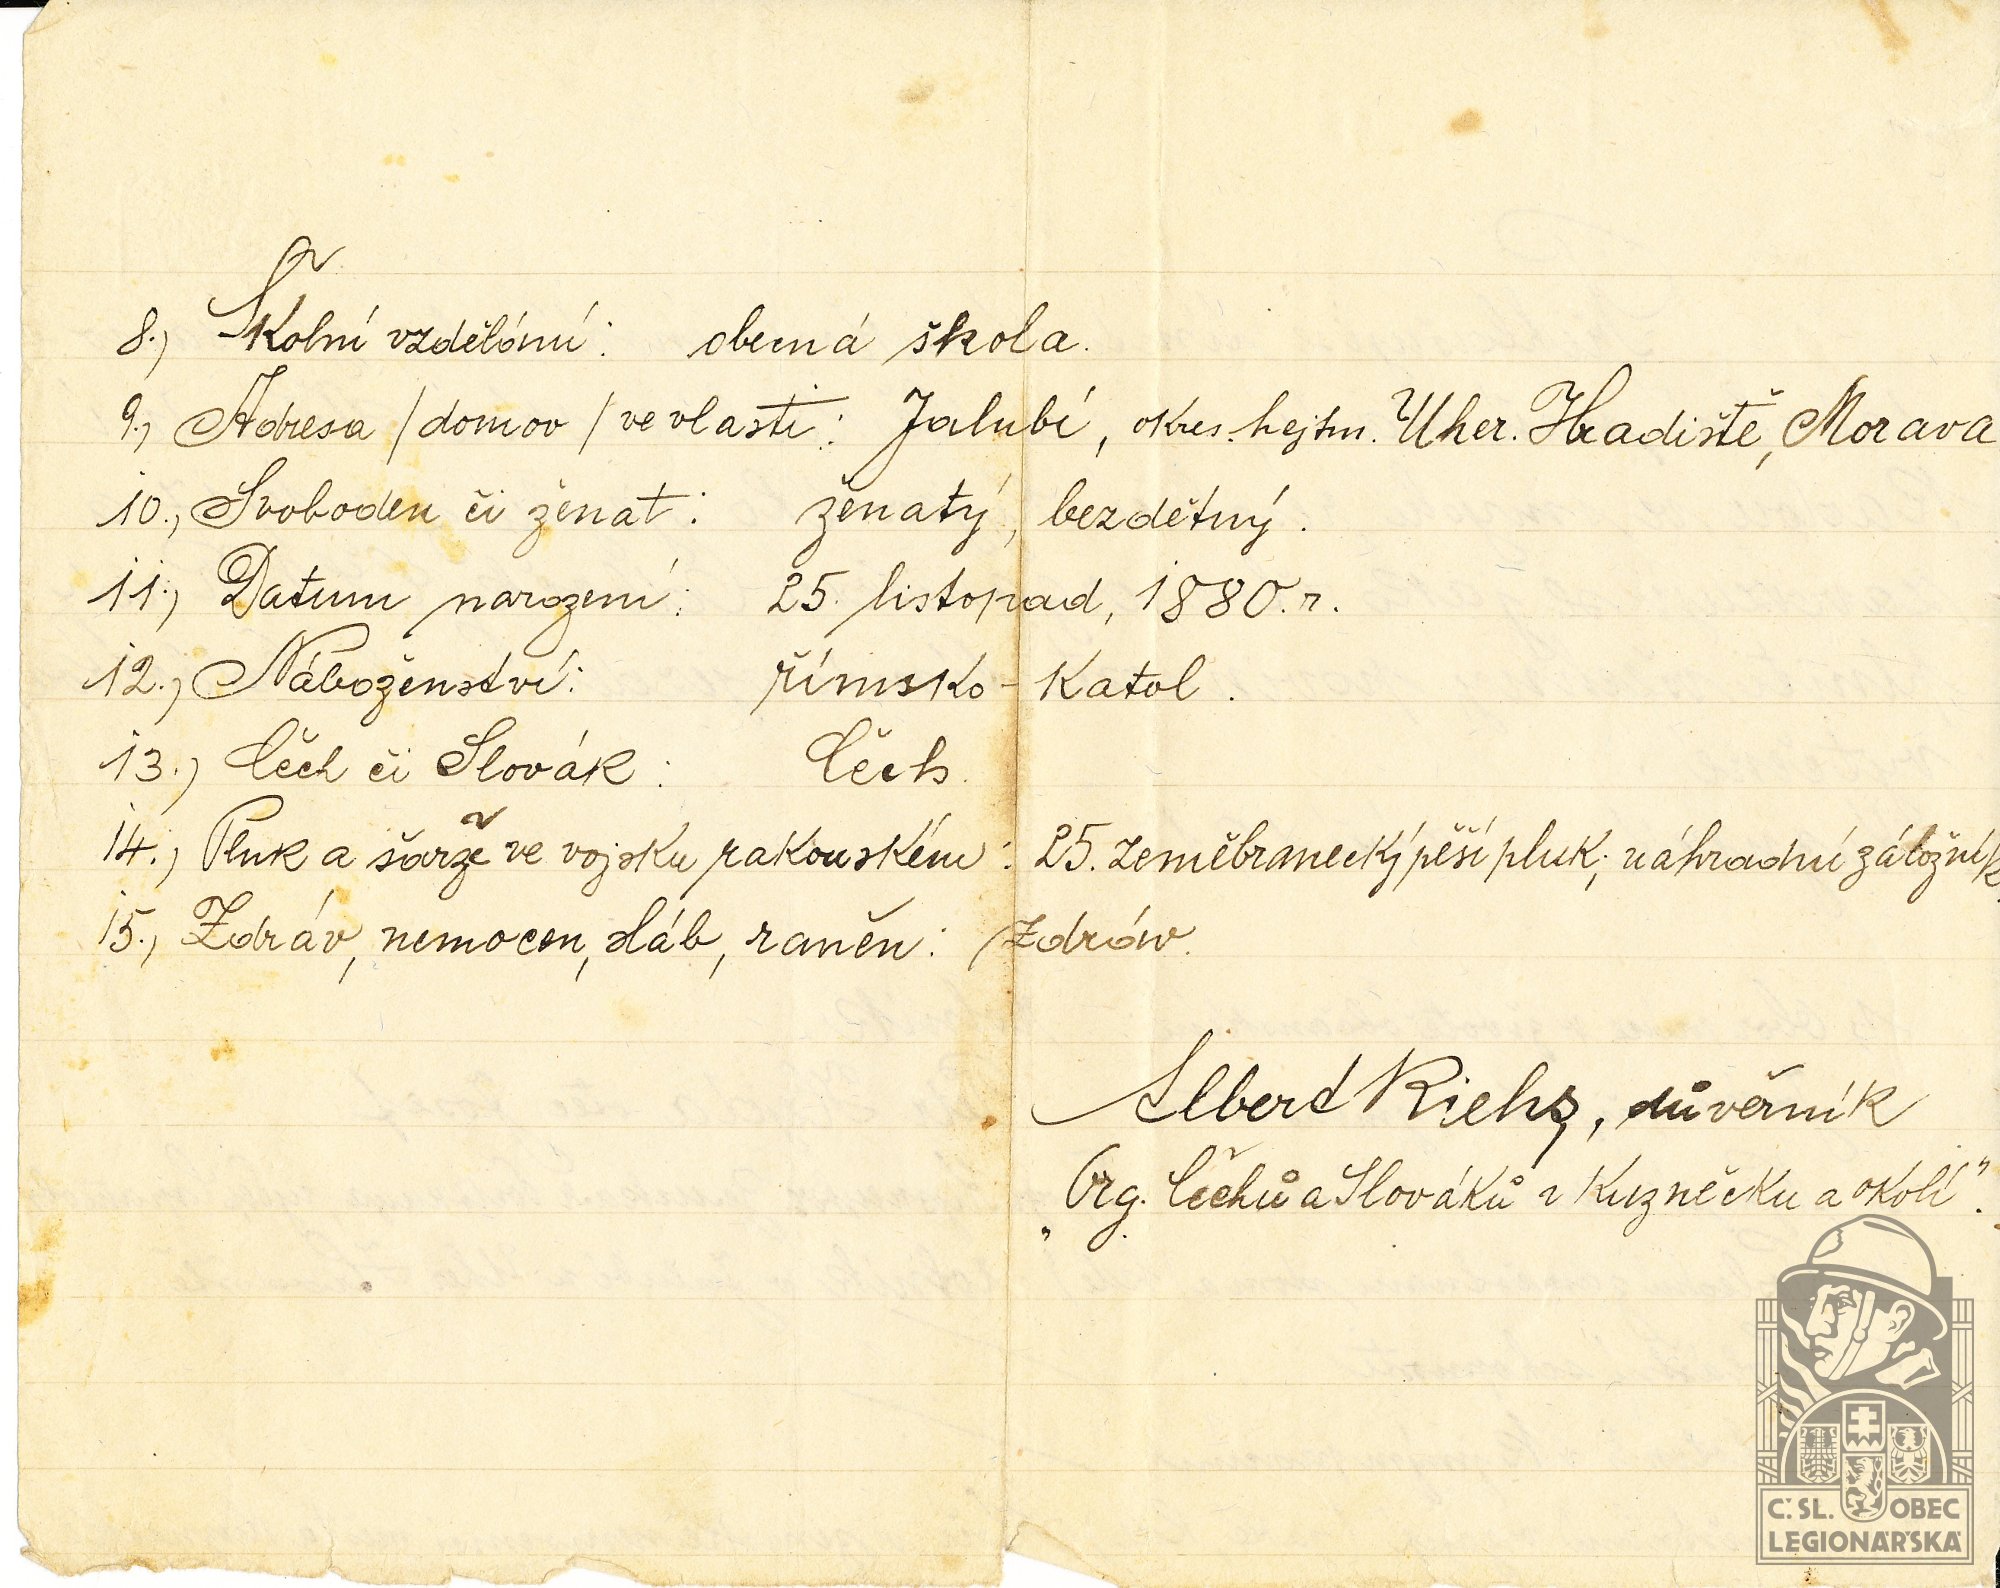 8., Školní vzdělání: obecná škola.
9., Adresa /domov/ ve vlasti: Jalubí, okres. hejtm. Uher. Hradiště, Morava
10., Svoboden či ženat: ženatý, bezdětný.
11., Datum narození: 25. listopad, 1880. r.
12., Náboženství: římsko-katol.
13.) Čech či Slovák: Čech.
14., Pluk a šarže ve vojsku rakouském: 25. zeměbranecký pěší pluk; náhradní záložník
15., Zdráv, nemocen, sláb, raněn: zdráv.
Albert Riehs, důvěrník
„Org. Čechů a Slováků v Kuzněcku a okolí".
Č.SL. OBEC
LEGIONÁŘSKÁ